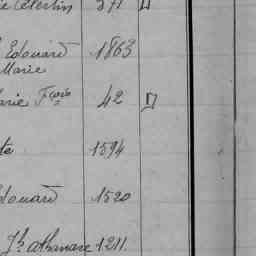 Célestin 371
Edouard 1863
Marie
arie Fçois 42
te 1594
douard 1520
Jh athanase 1211